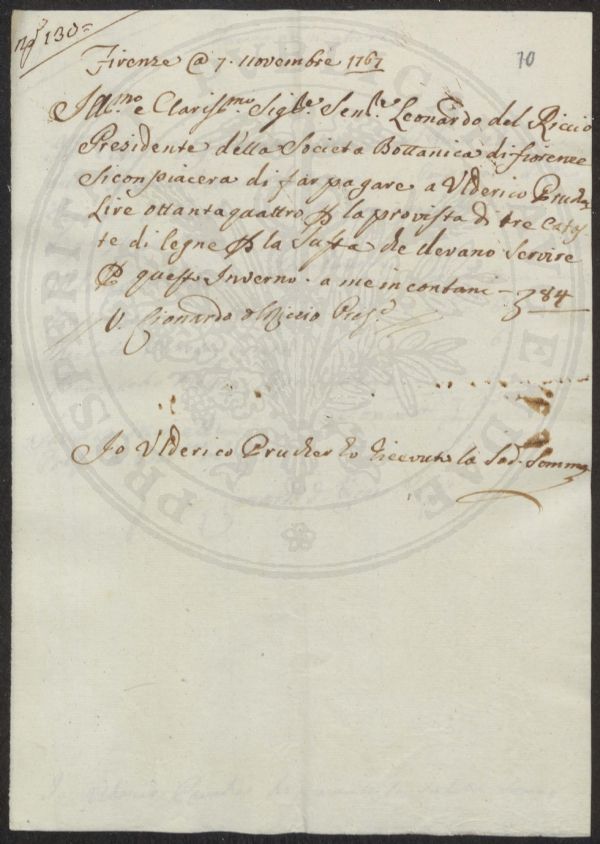 N.º 130=
70
Firenze @ 7. Novembre 1767
Ill.mo e Claris.mo Sig.re Sen.re Leonardo del Riccio
Presidente della Societa Bottanica di fiorenze
Si conpiacera di far pagare a Vlderico Prucher
Lire ottantaquattro ꝑ la provista di tre Catas
te di legne ꝑ la che devano Servire
ꝑ questo Inverno. a me in contani - 84
V. Lionardo del Riccio Pres.
Io Vlderico Prucher ho ricevuto la Sod. Somma
PUBLICAE
PROSPERITATI